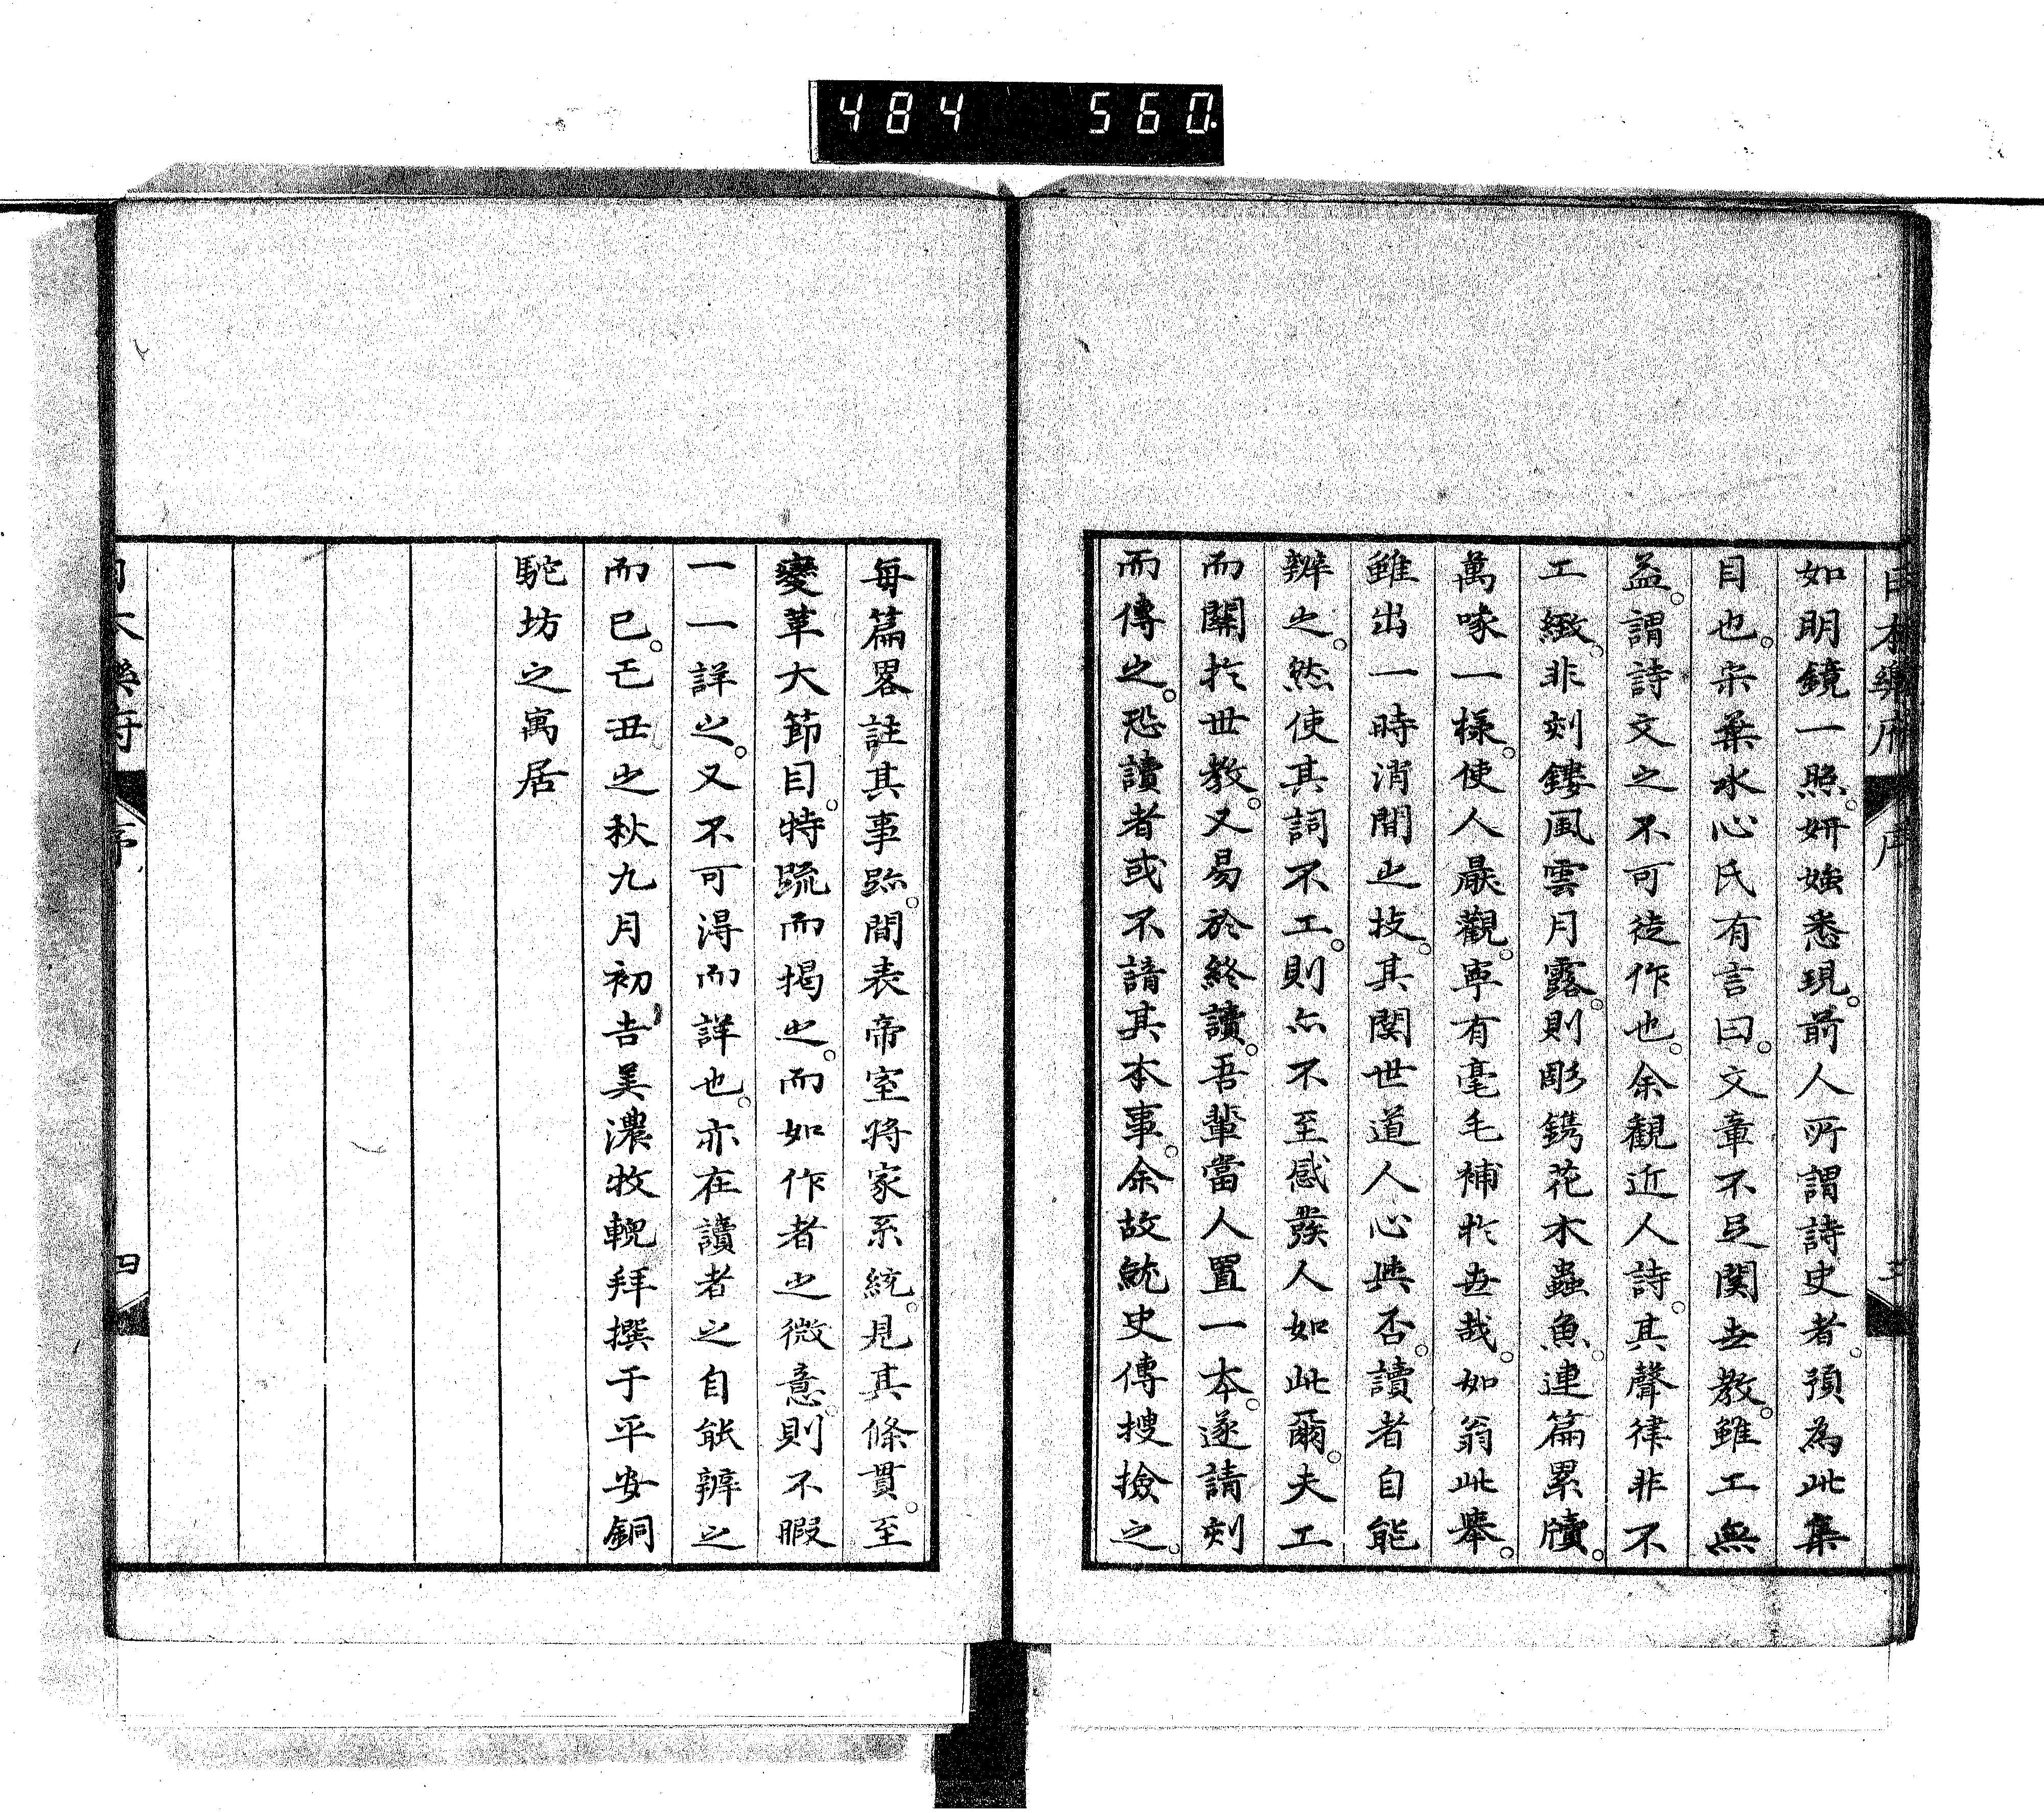 484 560.
日本樂府 序
如明鏡一照。妍媸悉現。前人所謂詩史者。預為此集
目也。宋葉水心氏有言曰。文章不足関世教。雖工無
益。謂詩文之不可徒作也。余観近人詩。其聲律非不
工緻。非刻鏤風雲月露。則彫鎸花木蟲魚。連篇累牘。
萬喙一様。使人厭觀。寧有毫毛補於世哉。如翁此舉。
雖出一時消閒之技。其関世道人心與否。讀者自能
辨之。然使其詞不工。則亦不至感發人如此爾。夫工
而關於世教。又易於終讀。吾輩當人置一本。遂請刻
而傳之。恐讀者或不諳其本事。余故就史傳搜撿之。
每篇畧註其事跡。間表帝室將家系統。見其條貫。至
變革大節目。特疏而揭之。而如作者之微意。則不暇
一一詳之。又不可得而詳也。亦在讀者之自能辨之
而已。己丑之秋九月初吉美濃牧輗拜撰于平安銅
駝坊之寓居
日本樂府 序 四